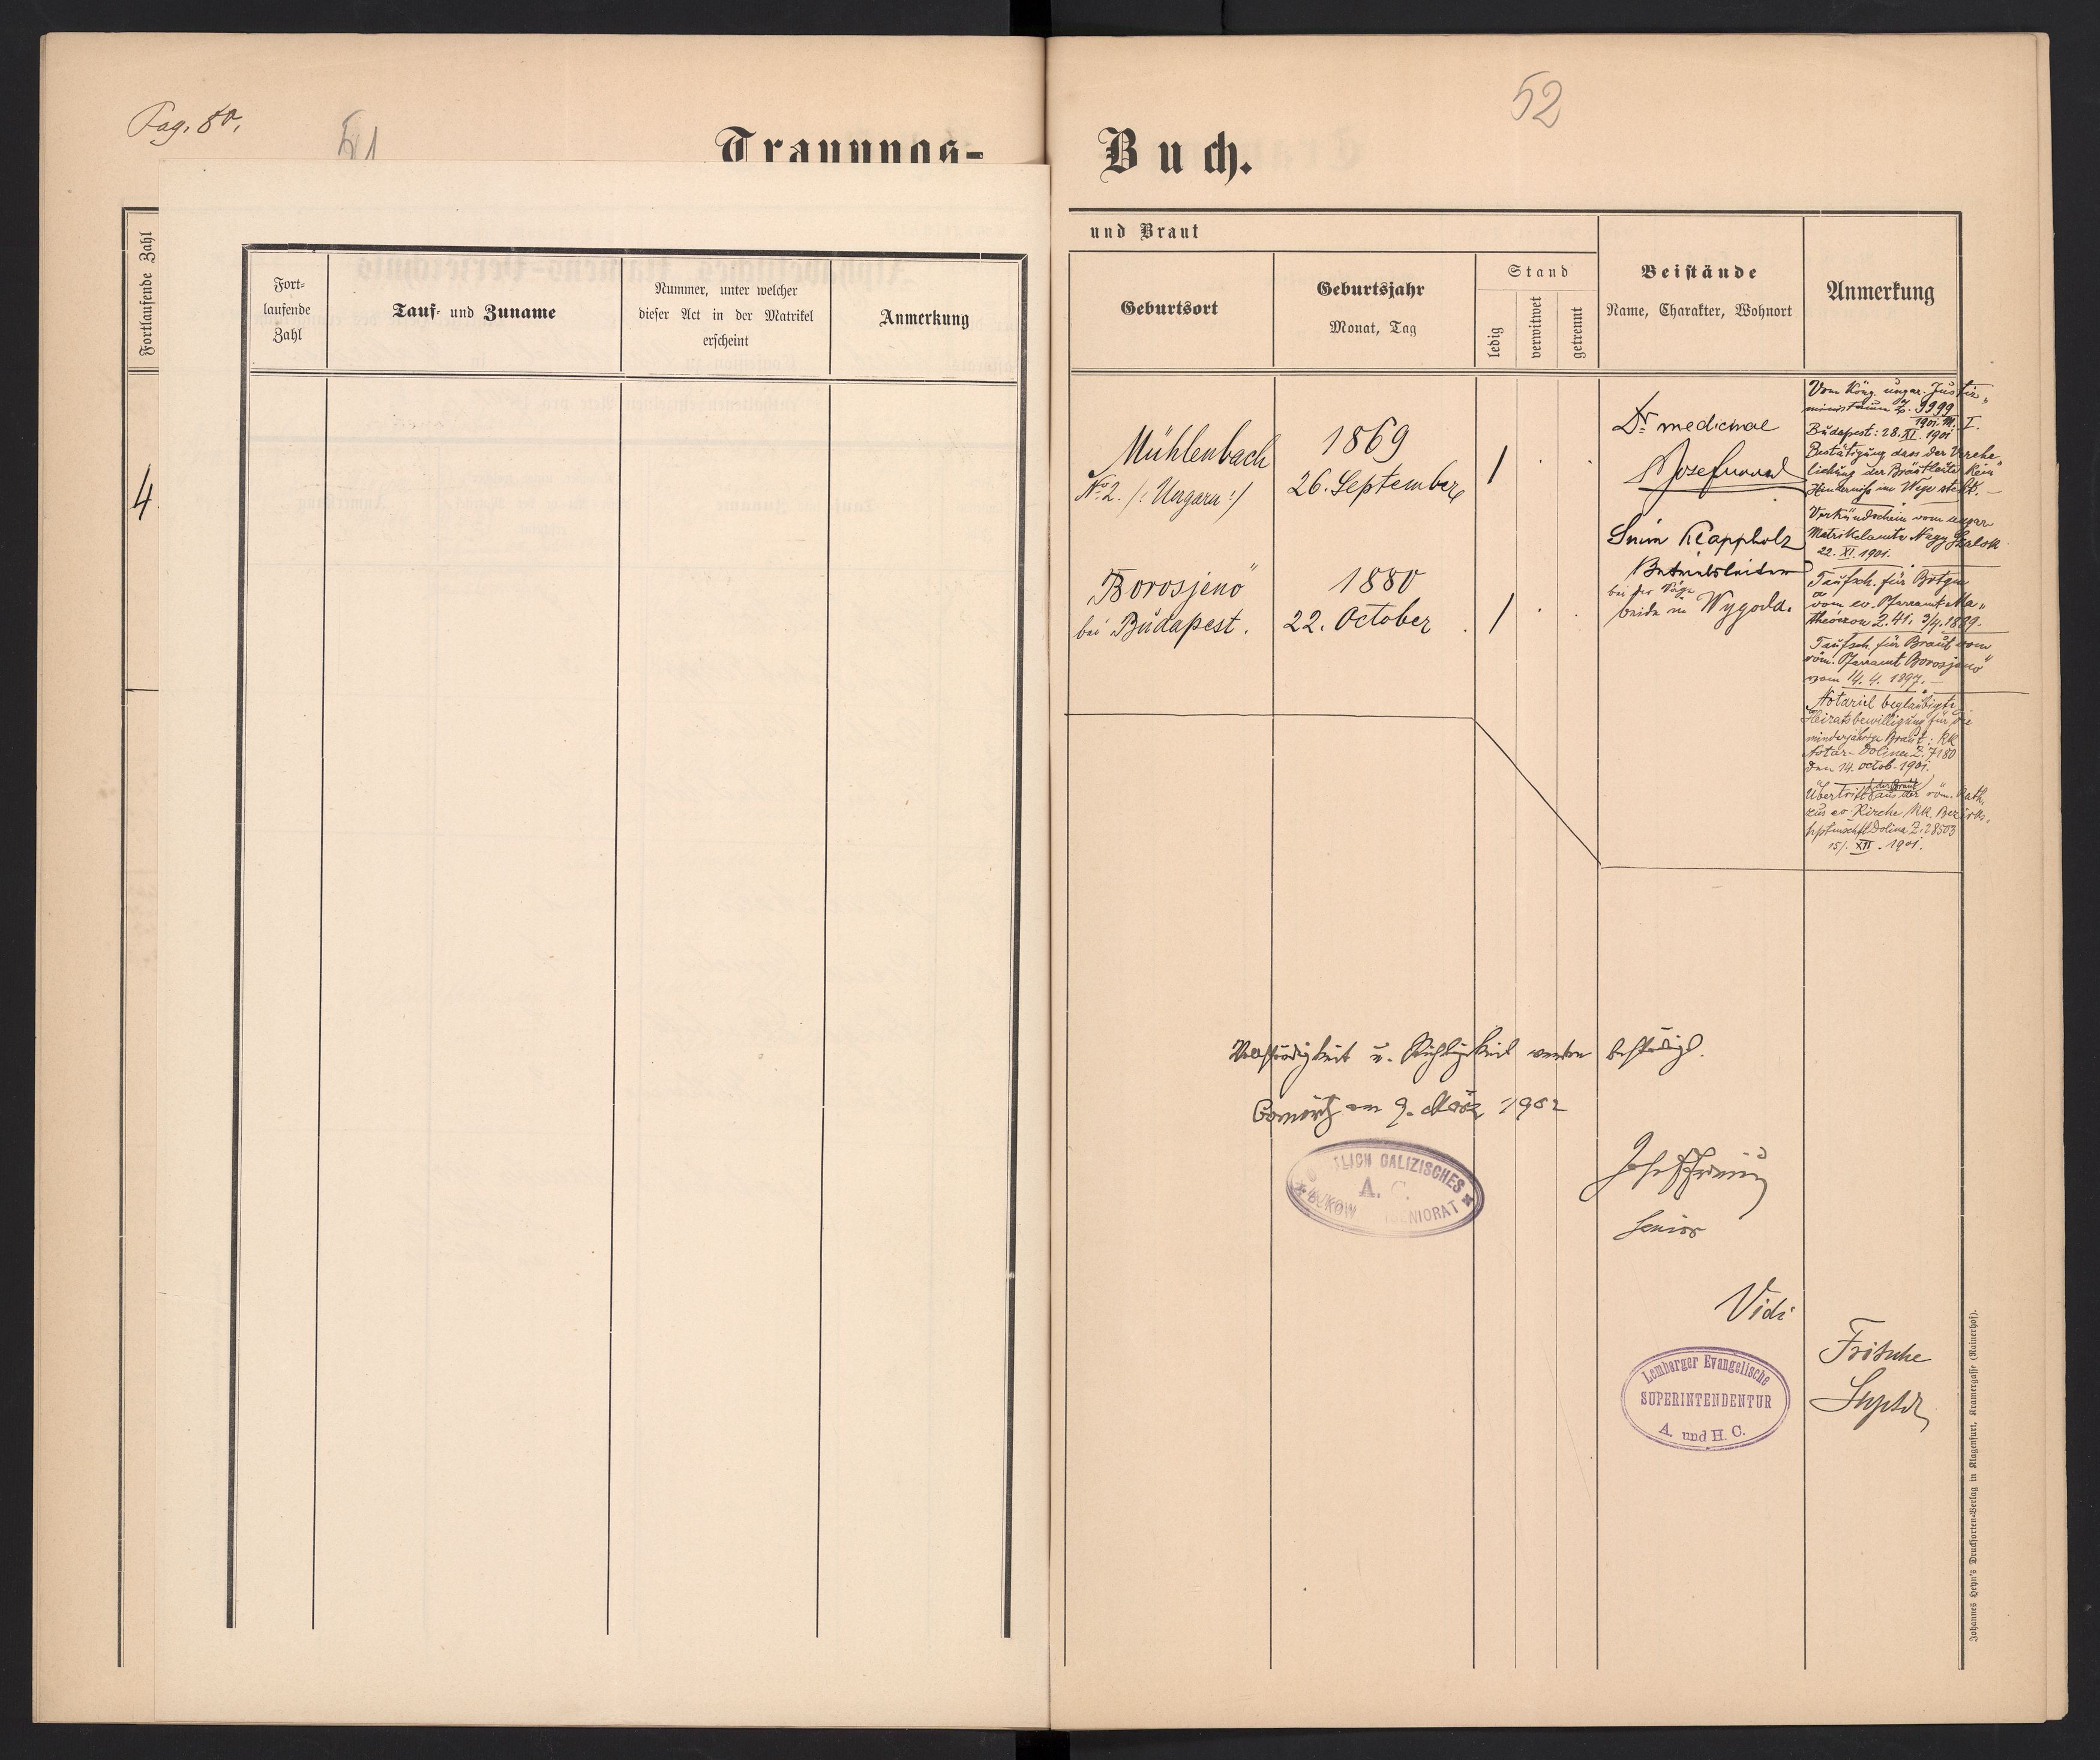 Pag. 50.
51
Trauungs-
Fortlaufende Zahl
4.
Fort-
laufende
Zahl
Tauf- und Zuname
Nummer, unter welcher
dieser Act in der Matrikel
erscheint
Anmerkung
52
Buch.
und Braut
Geburtsort
Geburtsjahr
Monat, Tag
Stand
ledig
verwitwet
getrennt
Beistände
Name, Charakter, Wohnort
Anmerkung
Mühlenbach
No 2. /: Ungarn :/
1869
26. September
1
Dr medicinae
Klappholz
Betriebsleiter
bei der Säge
beide in Wygoda.
Borosjenö
bei Budapest.
1880
22. October
1
Vom Kön. ungar. Justiz-
ministerium Z. 9999
1901. M. I.
Budapest: 28. XI. 1901
Bestätigung dass der Verehe-
lichung der Brautleute kein
Hinderniss im Wege steht. —
Verkündschein vom ungar.
Matrikelamte Nagy
22. XI. 1901.
Taufsch. für Brtgm
vom ev. Pfarramt Ma-
Z. 41. 3/4. 1899.
Taufsch. für Braut vom
röm. Pfarramt Borosjenö
vom 14. 4. 1897. —
Notariel beglaubigte
Heiratsbewilligung für die
minderjährige Braut: KK
Notar - Dolina Z. 7180
den 14. Octob. 1901.
(der Braut)
Übertritt aus der röm. Kath.
zur ev. Kirche KK. Bezirks-
hptmschft Dolina Z. 28503
15/. XII. 1901.
Vollständigkeit u. Richtigkeit werden bestätigt.
am 9. März 1902
GALIZISCHES
A. C.
SENIORAT
Senior
Vidi
Lemberger Evangelische
SUPERINTENDENTUR
A. und H. C.
Fritsche
Suptdt
Johannes Heyn's Drucksorten-Verlag in Klagenfurt, Kramergasse (Rainerhof).